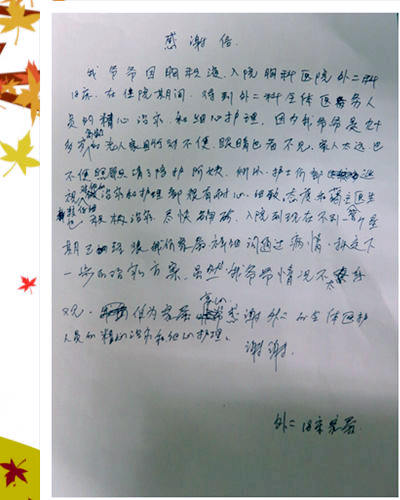 感谢信
我爷爷因胸积液，入院胸科医院外二科
18床，在住院期间，得到外二科全体医务人
员的精心治疗，和细心护理，因为我爷爷是九十
多岁的老人家且行动不便，眼睛也看不见，家人太远也
不便照顾请了陪护阿姨，但外二护士们都
视治疗和护理都很有耐心，细致，态度
积极治疗，尽快确诊，入院到现在不到一个星
期已和我们家属详细沟通过病情，拟定下
一步的治疗方案，虽然我爷爷情况不太乐
观，作为家属衷心感谢外二的全体医护
人员的精心治疗和细心护理。
谢谢
外二18床家属